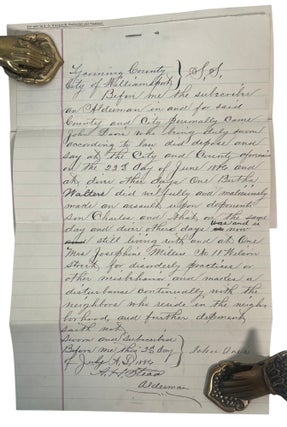 Lycoming County } S.S.
City of Williamsport }
Before me the subscriber
an Alderman in and for said
County and City personally came
John Doer who being duly sworn
according to law did depose and
say at the City and County aforesaid
on the 23d day of June 1886 and
at divers other days One Bertha
Walters did wilfully and maliciously
made an assault upon deponents
son Charles and that on the same
day and divers others days was and is now
still living with and at One
Mrs Josephine Millers No. 11 Wilson
Street for disorderly practices or
other misbehavior and makes a
disturbance continually with the
neighbors who reside in the neigh
borhood, and further deponent
saith not.
Sworn and Subscribed
Before me this 2d day John Doer
of July A.D 1886
Alderman